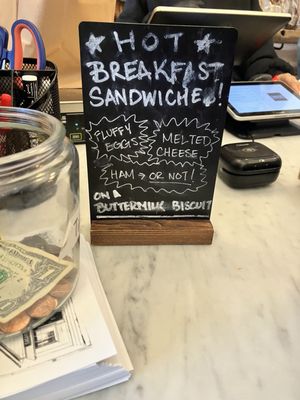 ★ HOT ★
BREAKFAST
SANDWICHES!
FLUFFY
EGGS
MELTED
CHEESE
HAM → OR NOT!
ON A
BUTTERMILK BISCUIT